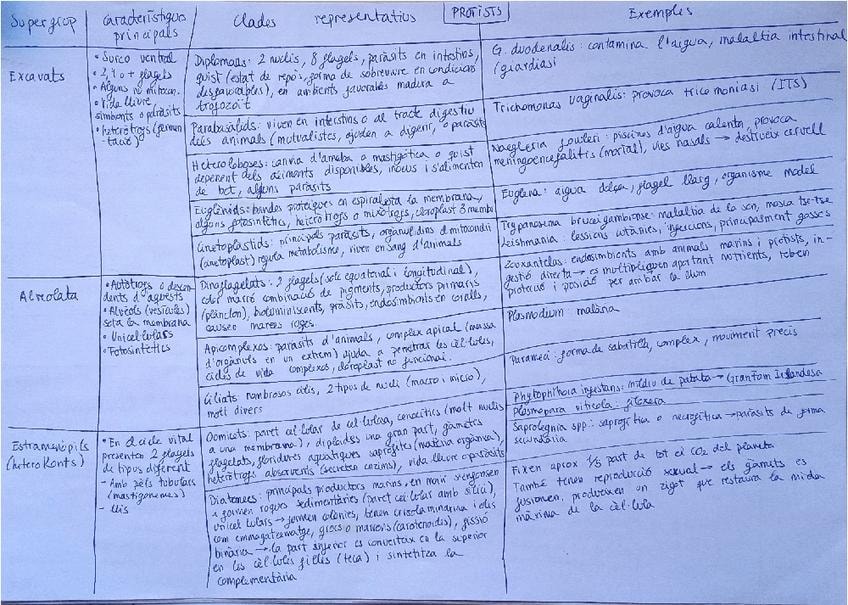 Supergrup
Característiques principals
Clades representatius
PROTISTS
Exemples
Excavats
• Surco ventral
• 2, 4 o + flagels
• Alguns no mitocon.
• Vida lliure,
simbionts o paràsits
• heteròtrofs (fermen-
tació)
Diplomonas: 2 nuclis, 8 flagels, paràsits en intestins,
quist (estat de repòs, forma de sobreviure en condicions
desfavorables), en ambients favorables madura a
trofozoït
G. duodenalis: contamina l'aigua, malaltia intestinal
(giardiasi
Parabasàlids: viven en intestins o al tracte digestiu
dels animals (mutualistes, ajuden a digerir, o paràsits
Trichomonas vaginalis: provoca tricomoniasi (ITS)
Heteroloboses: canvia d'ameba a mastigòtica o quist
depenent dels aliments disponibles, inocus i s'alimenten
de bct, alguns paràsits
Naegleria fowleri: piscines d'aigua calenta, provoca
meningoencefalitis (mortal), vies nasals → destrueix cervell
Euglènids: bandes proteiques en espiral sota la membrana,
alguns fotosintètics, heteròtrofs o mixòtrofs, cloroplast 3 membr
Euglena: aigua dolça, flagel llarg, organisme model
Cinetoplastids: principals paràsits, orgànul dins el mitocondri
(cinetoplast) regula metabolisme, viven en sang d'animals
Trypanosoma brucei gambiense: malaltia de la son, mosca tse-tse
Leishmania: lessions cutànies, injeccions, principalment gossos
Alveolata
• Autòtrofs o descen-
dents d'aquests
• Alvèols (vesícules)
sota la membrana
• Unicel·lulars
• Fotosintètics
Dinoflagelats: 2 flagels (solc equatorial i longitudinal),
color marró combinació de pigments, productors primaris
(plàncton), bioluminiscents, paràsits, endosimbionts en coralls,
causen marees roges
Zooxanteles: endosimbionts amb animals marins i protists, in-
gestió directa → es multipliquen aportant nutrients, reben
protecció i posició per arribar la llum
Apicomplexos: paràsits d'animals, complex apical (massa
d'orgànuls en un extrem) ajuda a penetrar les cèl·lules,
cicles de vida complexos, cloroplast no funcional.
Plasmodium: malària
Ciliats nombrosos cilis, 2 tipus de nucli (macro i micro),
molt divers
Parameci: forma de sabatilla, complex, moviment precís
Estramenòpils
(heterokonts)
• En el cicle vital
presenten 2 flagels
de tipus diferent
- Amb pèls tubulars
(mastigonemes)
- Llis
Oomicots: paret cel·lular de cel·lulosa, cenocítics (molt nuclis
a una membrana), diploides una gran part, gàmetes
flagelats, floridures aquàtiques saprofites (matèria orgànica),
heteròtrofs absorvents (secreten enzims), vida lliure o paràsits
Phytophthora infestans: mildiu de patata → Gran fam Irlandesa
Plasmopara viticola: filoxera
Saprolegnia spp: saprofítica o necrofítica → paràsits de forma
secundària
Diatomees: principals productors marins, en morir s'enfonsen
i formen roques sedimentàries (paret cel·lular amb silici),
unicel·lulars → formen colònies, tenen crisolaminarina i olis
com emmagatzematge, grocs o marrons (carotenoids), fissió
binària → la part inferior es converteix en la superior
en les cèl·lules filles (teca) i sintetitza la
complementària
Fixen aprox 1/5 part de tot el CO2 del planeta
També tenen reproducció sexual → els gàmets es
fusionen, produeixen un zigot que restaura la mida
màxima de la cèl·lula